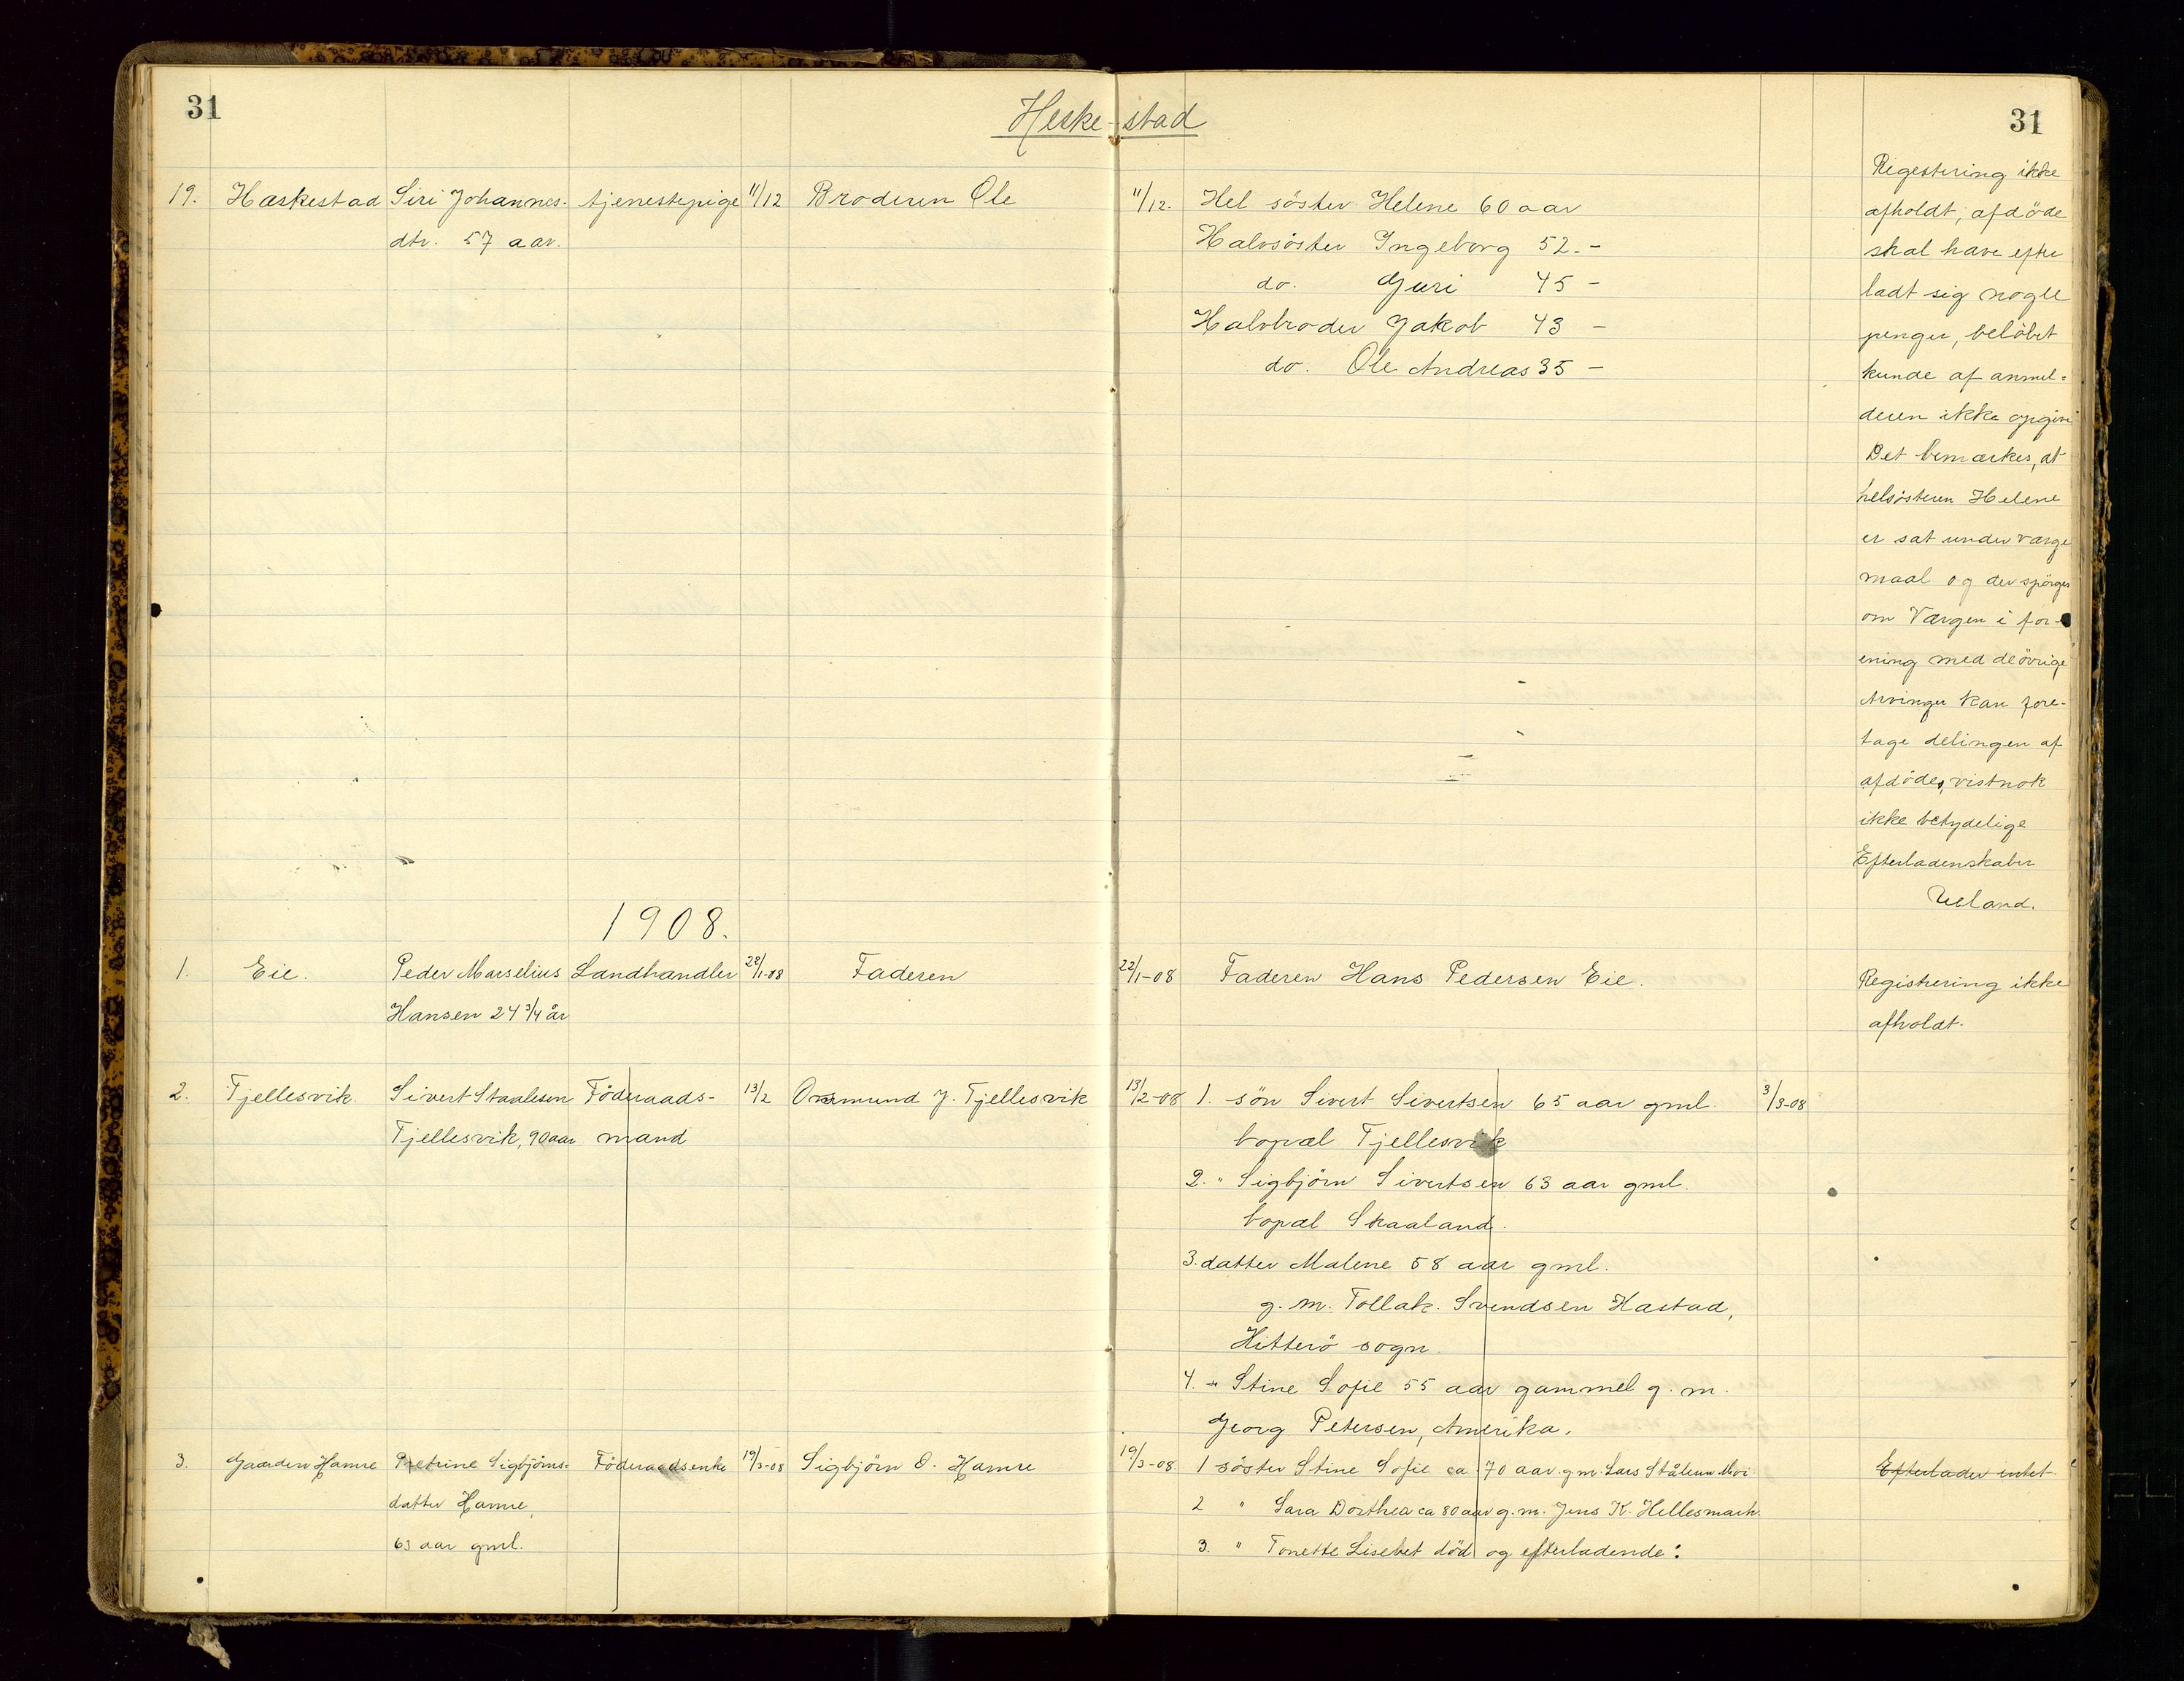 31
Heske-stad
31
19. Hæskestad Siri Johannes- tjenestepige 11/12 Broderen Ole
dtr. 57 aar.
11/12. Hel söster Helene 60 aar
Halvsöster Ingeborg 52.-
do. Guri 45 -
Halvbroder Jakob 43 -
do. Ole Andreas 35 -
Rigestering ikke
afholdt, afdöde
skal have efter
ladt sig nogle
penger, belöbet
kunde af anmel=
deren ikke opgive
Det bemærkes, at
helsösteren Helene
er sat under værge
maal og der spörges
om Værgen i for-
ening med de övrige
Arvinger kan fore-
tage delingen af
afdödes, vistnok
ikke betydelige
Efterladenskaber
Ueland.
1908.
1. Eie. Peder Marselius Landhandler 22/1-08 Faderen
Hansen 24 3/4 år
22/1-08 Faderen Hans Pedersen Eie.
Registrering ikke
afholdt.
2. Tjellesvik. Sivert Staalesen Föderaads- 13/2 Omund J. Tjellesvik
Tjellesvik, 90 aar mand
13/2-08 1. sön Sivert Sivertsen 65 aar gml. 3/3-08
bopæl Tjellesvik
2. " Sigbjörn Sivertsen 63 aar gml.
bopæl Skaaland.
3. datter Malene 58 aar gml.
g. m. Tollak. Svendsen Hastad,
Hitterö sogn.
4. " Stine Sofie 55 aar gammel g. m.
Georg Petersen, Amerika.
3. Gaarden Hamre Petrine Sigbjörns- Föderaadsenke 19/3-08 Sigbjörn O. Hamre
datter Hamre,
63 aar gml.
19/3-08. 1 söster Stine Sofie ca 70 aar g m. Lars Stålesen
2 " Sara Dorthea ca 80 aar g. m. Jens K. Hellesmark.
3. " Tonette Lisebet död og efterladende:
Efterlader intet.